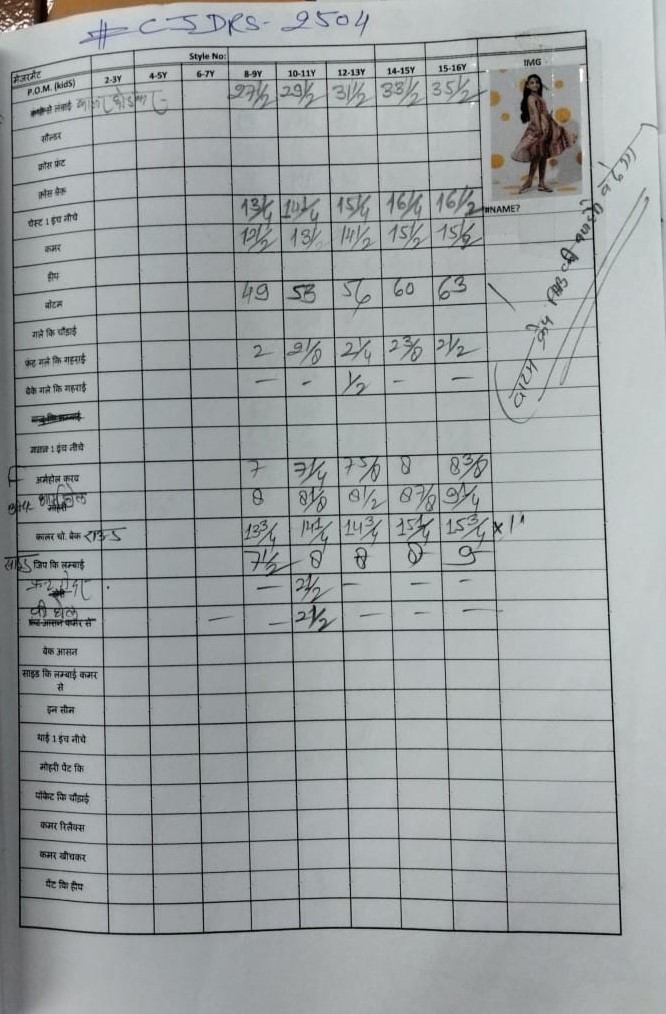 # CJDRS-2504
Style No:
मेजरमेंट
P.O.M. (kidS) 2-3Y 4-5Y 6-7Y 8-9Y 10-11Y 12-13Y 14-15Y 15-16Y IMG
लंबाई 27 1/2 29 1/2 31 1/2 33 1/2 35 1/2
सोल्डर
क्रोस फ्रंट
क्रोस बेक
चेस्ट 1 इंच नीचे 13 1/4 14 1/4 15 1/4 16 1/4 16 1/2 #NAME?
कमर 12 1/2 13 1/2 14 1/2 15 1/2
हीप
बॉटम 49 53 56 60 63
गले कि चौड़ाई
फ्रंट गले कि गहराई 2 2 1/8 2 1/4 2 3/8 2 1/2
बेके गले कि गहराई — - 1/2 - —
1 इंच नीचे
F अर्महोल करव 7 7 1/4 7 5/8 8 8 3/8
8 8 1/8 8 1/2 8 7/8 9 1/4
कालर चो. बेक राउंड 13 3/4 14 1/4 14 3/4 15 1/4 15 3/4 x 1"
साइड जिप कि लम्बाई 7 1/2 8 8 8 9
— 2 1/2 — - -
— — 2 1/2 — — —
बेक आसन
साइड कि लम्बाई कमर
से
इन सीम
थाई 1 इंच नीचे
मोहरी पेंट कि
पॉकेट कि चौड़ाई
कमर रिलैक्स
कमर खीचकर
पेंट कि हीप